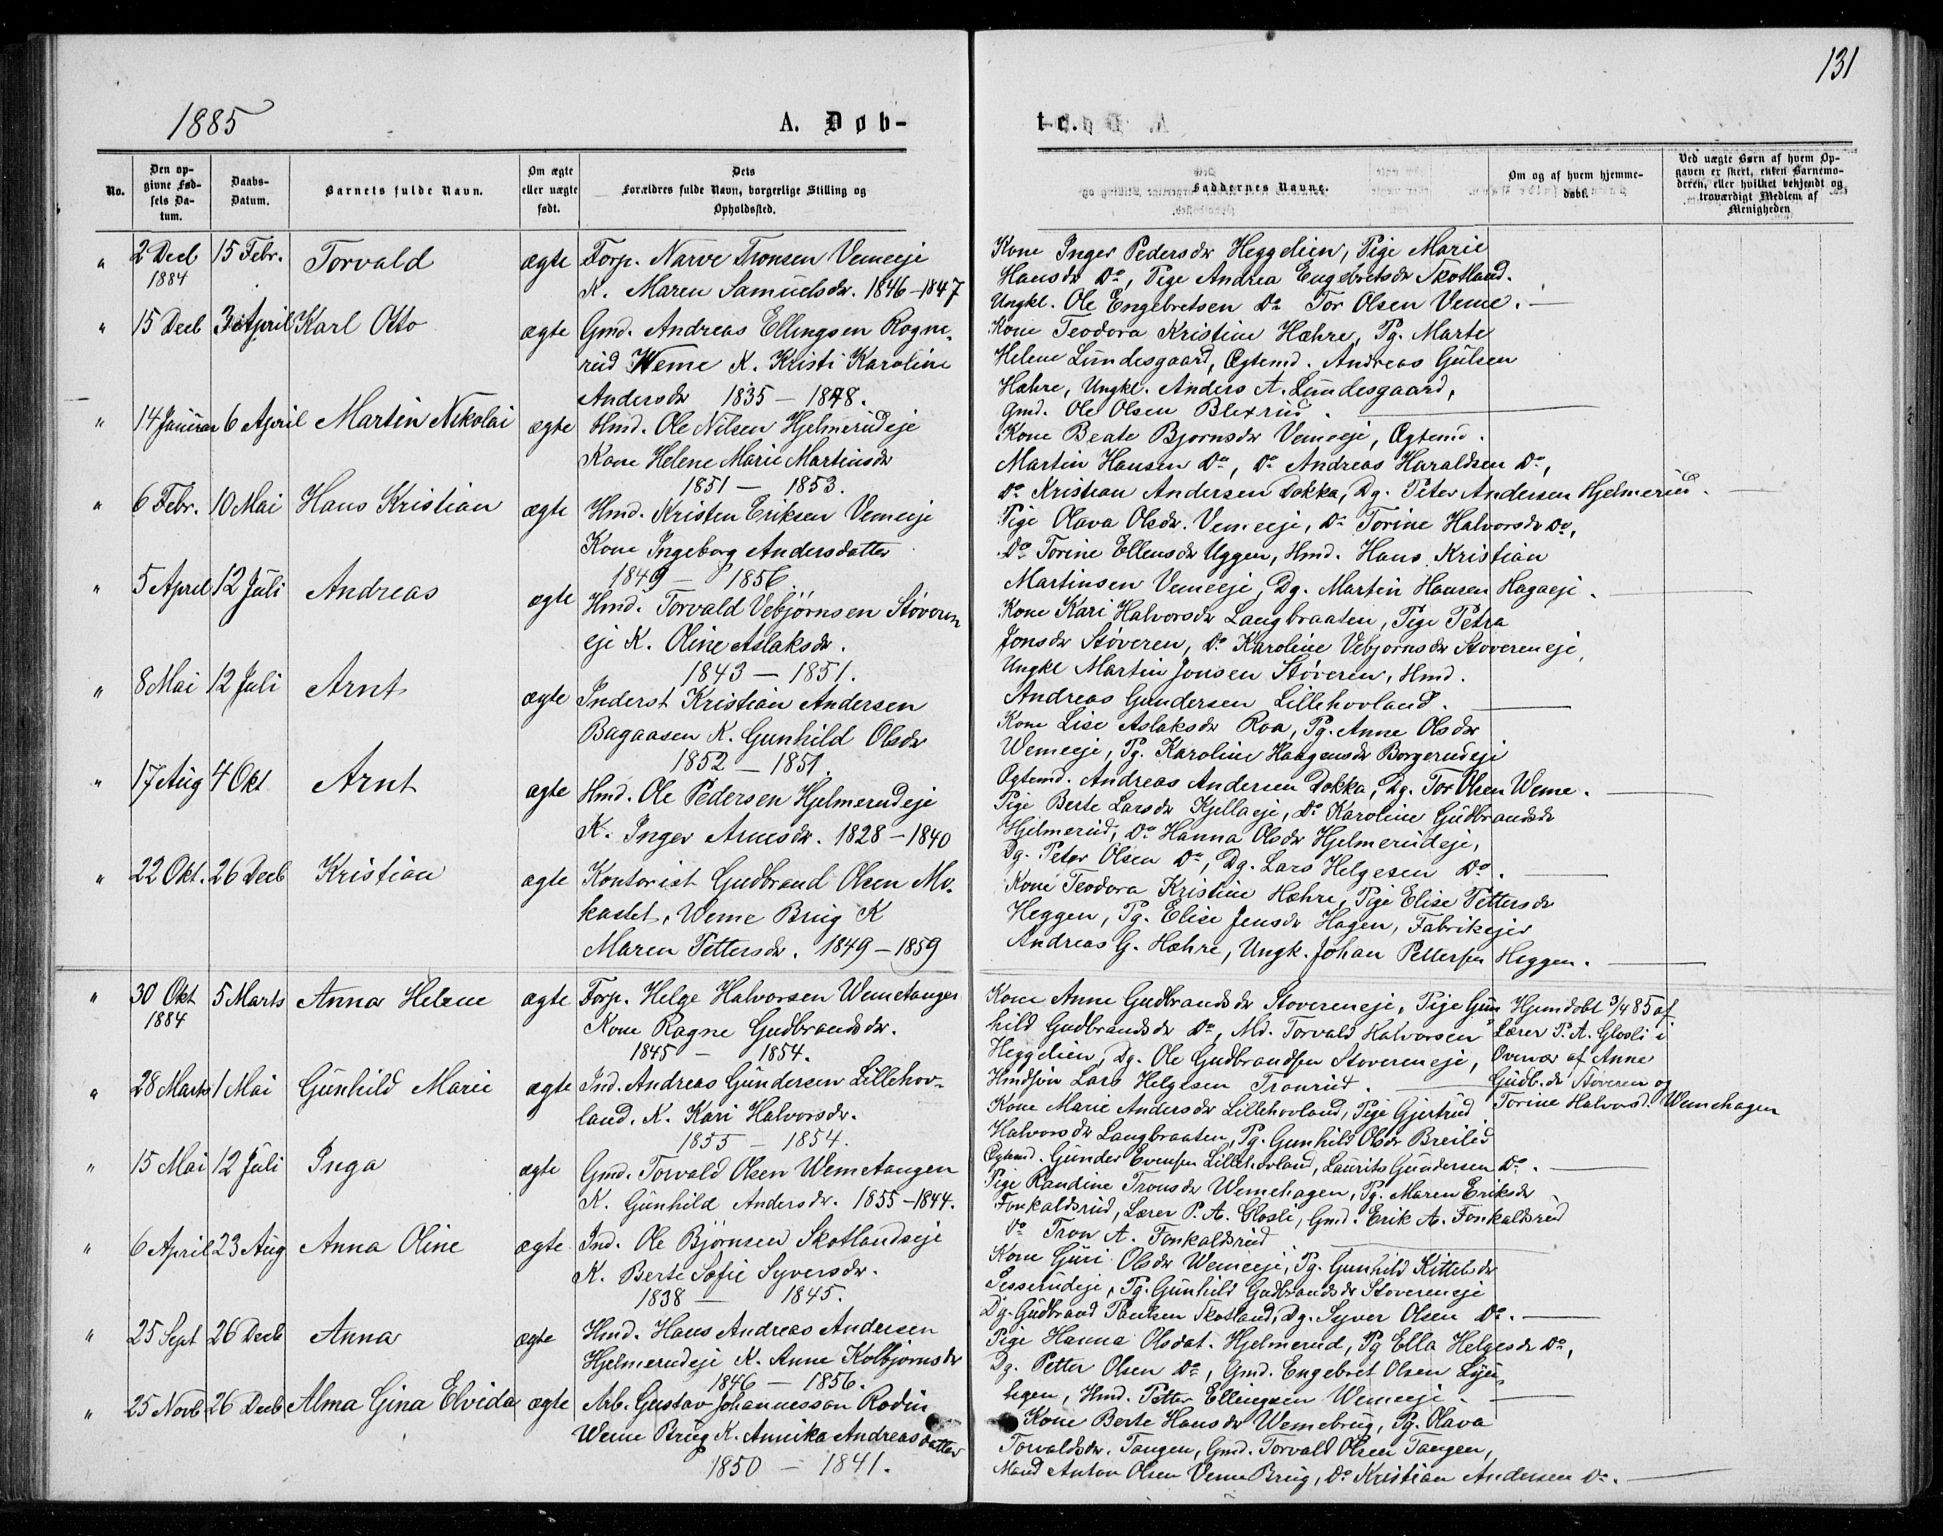 131
1885
A. Døb-
te.
No.
Den op-
givne Fød-
sels Da-
tum.
Daabs-
Datum.
Barnets fulde Navn.
Om ægte
eller uægte
født.
Dets
Forældres fulde Navn, borgerlige Stilling og
Opholdssted.
Faddernes Navne.
Om og af hvem hjemme-
døbt.
Ved uægte Børn af hvem Op-
gaven er skeet, enten Barnemo-
deren, eller hvilket bekjendt og
troværdigt Medlem af
Menigheden
" 2 Decb 15 Febr. Torvald ægte Forp. Narve Tronsen Vemeeje
1884
K. Maren Samuelsdr. 1846 - 1847
Kone Inger Pedersdr Heggelien, Pige Marie
Hansdr Do, Pige Andrea Engebretsdr Skotland.
Ungkl. Ole Engebretsen Do Tor Olsen Veme.
" 15 Decb 3 April Karl Otto ægte Gmd. Andreas Ellingsen Rogne-
rud Veme K. Kristi Karoline
Andersdr 1835 - 1848.
Kone Teodora Kristine Hæhre, Pg. Marte
Helene Lundesgaard, Ægtemd. Andreas Gulsen
Hæhre, Ungkl. Anders A. Lundesgaard,
Gmd. Ole Olsen Blexrud.
" 14 Januar 6 April Martin Nikolai ægte Hmd. Ole Nilsen Hjelmerudeje
Kone Helene Marie Martinsdr
1851 - 1853.
Kone Beate Bjørnsdr Vemeeje, Ægtemd.
Martin Hansen Do, Do Andreas Haraldsen Do,
Do Kristian Andersen Dokka, Dg. Peter Andersen Hjelmerud.
" 6 Febr. 10 Mai Hans Kristian ægte Hmd. Kristen Eriksen Vemeeje
Kone Ingeborg Andersdatter
1849 - 1856.
Pige Olava Olsdr. Vemeeje, Do Torine Halvorsdr Do,
Do Torine Ellensdr Uggen, Hmd. Hans Kristian
Martinsen Vemeeje, Dg. Martin Hansen Hagaeje.
" 5 April 12 Juli Andreas ægte Hmd. Torvald Vebjørnsen Støveren
eje K. Oline Aslaksdr.
1843 - 1851.
Kone Kari Halvorsdr Langbraaten, Pige Petra
Jonsdr Støveren, Do Karoline Vebjørnsdr Støvereneje,
Ungkl Martin Jonsen Støveren, Hmd.
Andreas Gundersen Lillehovland.
" 8 Mai 12 Juli Arnt ægte Inderst Kristian Andersen
Bagaasen K. Gunhild Olsdr
1852 - 1851.
Kone Lise Aslaksdr Roa, Pg. Anne Olsdr
Wemeeje, Pg. Karoline Haagensdr Borgerudeje
Ægtemd. Andreas Andersen Dokka, Dg. Tor Olsen Weme.
" 17 Aug 4 Okt Arnt ægte Hmd. Ole Pedersen Hjelmerudeje
K. Inger Arnesdr. 1828 - 1840
Pige Berte Larsdr Kjellaeje, Do Karoline Gudbrandsdr
Hjelmerud, Do Hanna Olsdr Hjelmerudeje,
Dg. Peter Olsen Do, Dg. Lars Helgesen Do.
" 22 Okt. 26 Decb Kristian ægte Kontorist Gudbrand Olsen Mo-
kastet, Weme Brug K
Maren Pettersdr. 1849 - 1859
Kone Teodora Kristine Hæhre, Pige Elise Pettersdr
Heggen, Pg. Elise Jensdr Hagen, Fabrikejer
Andreas G. Hæhre, Ungk. Johan Pettersen Heggen.
" 30 Okt 5 Marts Anna Helene ægte Forp. Helge Halvorsen Wemetangen
1884
Kone Ragne Gudbrandsdr.
1845 - 1854.
Kone Anne Gudbrandsdr Støvereneje, Pige Gun
hild Gudbrandsdr Do, Md. Torvald Halvorsen
Heggelien, Dg. Ole Gudbrandsen Støvereneje,
Hmdsøn Lars Helgesen Tronrud.
Hjemdøbt 3/1 85 af
Lærer P. A. Glosli i
Overvær af Anne
Gudb.dr Støveren og
Torine Halvorsd. Wemehagen
" 28 Marts 1 Mai Gunhild Marie ægte Ind. Andreas Gundersen Lillehov-
land. K. Kari Halvorsdr.
1855 - 1854.
Kone Marie Andersdr Lillehovland, Pige Gjertrud
Halvorsdr Langbraaten, Pg. Gunhild Olsdr Breilid
Ægtemd. Gunder Evensen Lillehovland, Laurits Gundersen Do.
" 15 Mai 12 Juli Inga ægte Gmd. Torvald Olsen Wemetangen
K. Gunhild Andersdr. 1855 - 1844.
Pige Randine Tronsdr Wemehagen, Pg. Maren Eriksdr
Fonkalsrud, Lærer P. A. Glosli, Gmd. Erik A. Fonkalsrud
Do Tron A. Fonkalsrud
" 6 April 23 Aug Anna Oline ægte Ind. Ole Bjørnsen Skotlandseje
K. Berte Sofie Syversdr.
1838 - 1845.
Kone Guri Olsdr Wemeeje, Pg. Gunhild Kittelsdr
Sesserudeje, Pg. Gunhild Gudbrandsdr Støvereneje
Dg. Gudbrand Paulsen Skotland, Dg. Syver Olsen Do.
" 25 Sept 26 Decb Anna ægte Hmd. Hans Andreas Andersen
Hjelmerudeje K. Anne Kolbjørnsdr
1846 - 1856.
Pige Hanna Olsdat. Hjelmerud, Pg Ella Helgesdr Do,
Dg. Petter Olsen Do, Gmd. Engebret Olsen
Hmd. Petter Ellingsen Wemeeje.
" 25 Novb 26 Decb Alma Gina Elvida ægte Arb. Gustav Johannesson Rodin
Weme Brug K. Annika Andreasdatter
1850 - 1841.
Kone Berte Hansdr Wemebrug, Pg. Olava
Torvaldsdr. Tangen, Gmd. Torvald Olsen Tangen,
Mand Anton Olsen Veme Brug, Do Kristian Andersen Do.